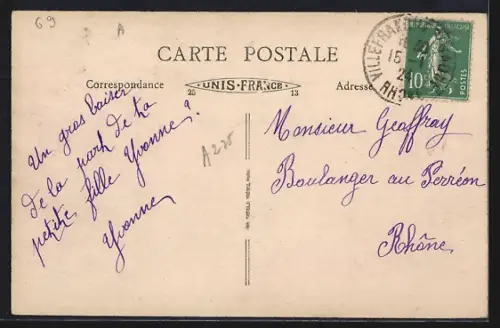 69
A
CARTE POSTALE
Correspondance
UNIS-FRANCE
25
13
Adresse
10
POSTES
VILLEFRANCHE
15
RHONE
Un gros baiser
de la part de ta
petite fille Yvonne?
Yvonne
A225
Monsieur Geoffray
Boulanger au Perréon
Rhône